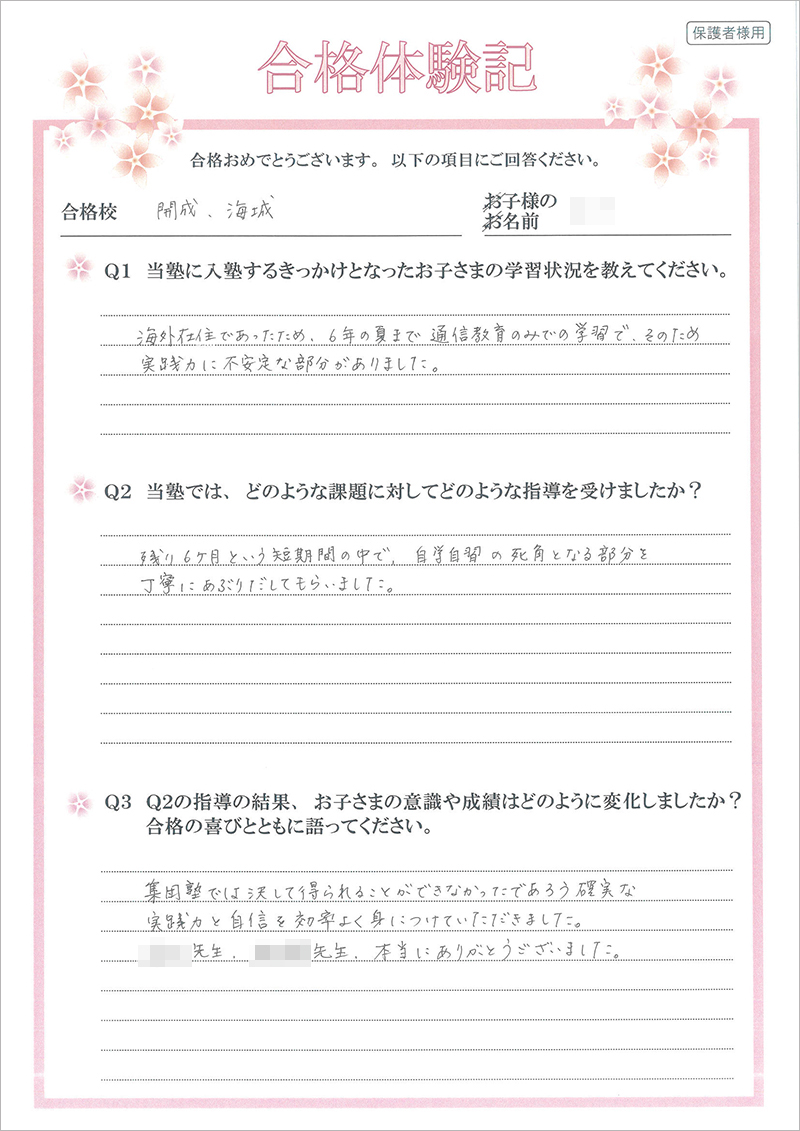 保護者様用
合格体験記
合格おめでとうございます。以下の項目にご回答ください。
合格校 開成、海城
お子様の
お名前
Q1 当塾に入塾するきっかけとなったお子さまの学習状況を教えてください。
海外在住であったため、6年の夏まで通信教育のみでの学習で、そのため
実践力に不安定な部分がありました。
Q2 当塾では、どのような課題に対してどのような指導を受けましたか？
残り6ケ月という短期間の中で、自学自習の死角となる部分を
丁寧にあぶりだしてもらいました。
Q3 Q2の指導の結果、お子さまの意識や成績はどのように変化しましたか？
合格の喜びとともに語ってください。
集団塾では決して得られることができなかったであろう確実な
実践力と自信を効率よく身につけていただきました。
先生、先生、本当にありがとうございました。